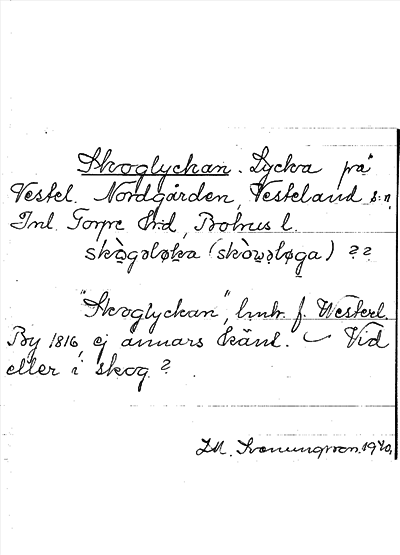 Skoglyckan. Lycka på
Vestel. Nordgården, Vesteland s:n,
Inl. Torpe h:d, Bohus l.
skògəløka (skòwəløga) ??
"Skoglyckan", f. Westerl.
By 1816, ej annars känt. Vid
eller i skog?
1940.